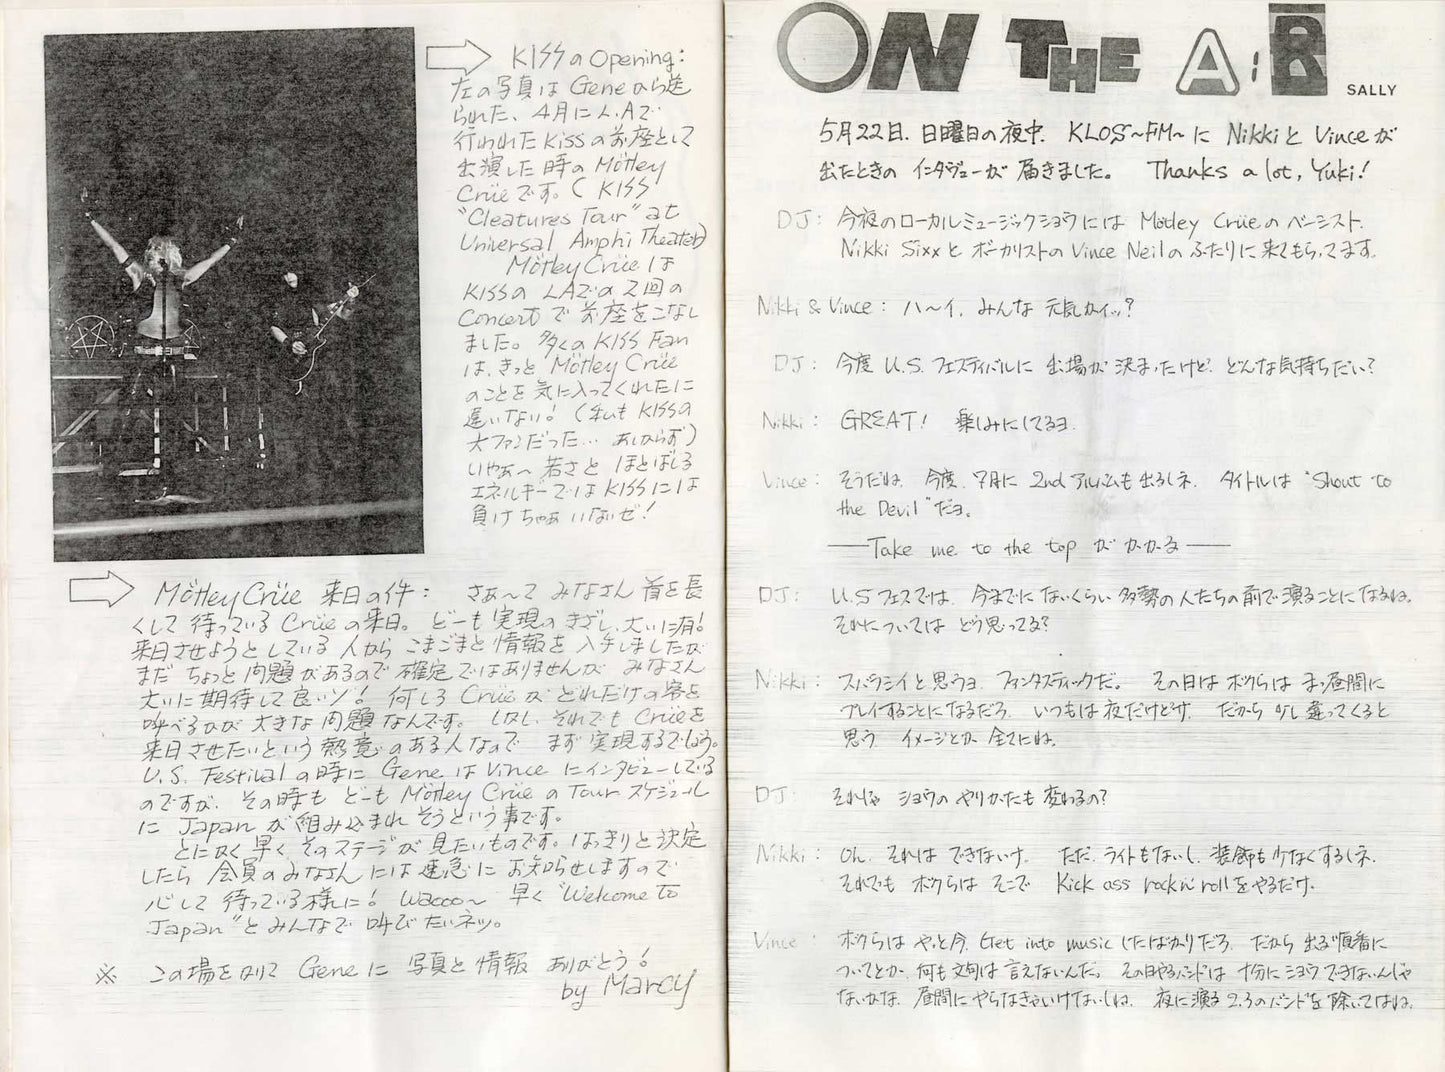 KISSのOpening:
左の写真は Geneから送
られた、4月にL.Aで
行われたKissのお座として
出演した時のMötley
Crüeです。( KISS
"Cleatures Tour" at
Universal Amphi Theater)
Mötley Crüeは
KISSの LAでの2回の
Concertで お座をこなし
ました。多くのKISS Fan
は、きっと Mötley Crüe
のことを気に入ってくれたに
違いない! (私もKISSの
大ファンだった… あしからず)
いやぁ〜 若さと ほとばしる
エネルギーではKISSには
負けちゃぁいないゼ!
Mötley Crüe 来日の件: さぁ〜て みなさん 首を長
くして 待っている Crüeの来日。どーも実現のきざし、大いに有!
来日させようとしている人から こまごまと情報を入手しましたが
まだ ちょっと問題があるので確定ではありませんが みなさん
大いに期待して良いゾ! 何しろ Crüeが どれだけの客を
呼べるかが大きな問題なんです。しかし、それでも Crüeを
来日させたいという熱意のある人なので まず実現するでしょう。
U.S. Festivalの時に Geneは Vinceにインタビューしている
のですが、その時も どーも Mötley Crüeの Tourスケジュール
に Japanが組み込まれそうという事です。
とにかく早くそのステージが見たいものです。はっきりと決定
したら 会員のみなさんには 速急に お知らせしますので
心して待っている様に! Wacco〜 早く "Welcome to
Japan"とみんなで 叫びたいネッ。
※ この場をかりて Geneに 写真と情報 ありがとう!
by Marcy
ON THE AiR
SALLY
5月22日、日曜日の夜中、KLOS〜FM〜に NikkiとVinceが
出たときの インタヴューが届きました。 Thanks a lot, Yuki!
DJ: 今夜のローカルミュージックショウには Mötley Crüeのベーシスト、
Nikki Sixxと ボーカリストの Vince Neilの ふたりに来てもらってます。
Nikki & Vince: ハ〜イ、みんな 元気カイッ?
DJ: 今度 U.S. フェスティバルに 出場が 決まったけど、どんな気持ちだい?
Nikki: GREAT! 楽しみにしてるヨ.
Vince: そうだね、今度、7月に 2nd アルバムも出るしネ. タイトルは "Shout to
the Devil"だヨ。
――Take me to the top が かかる――
DJ: U.Sフェスでは、今までにないくらい多勢の人たちの前で演ることになるね。
それについては どう思ってる?
Nikki: スバラシイと思うヨ、ファンタスティックだ。 その日は ボクらは まっ昼間に
プレイすることになるだろ、いつもは夜だけどサ. だから 少し違ってくると
思う イメージとか 全てにね。
DJ: それじゃ ショウのやりかたも変わるの?
Nikki: Oh. それは できないけ. ただ、ライトもないし、装飾も少なくするしネ.
それでも ボクらは そこで Kick ass rock n' roll をやるだけ.
Vince: ボクらは やっと今、Get into music したばかりだろ. だから 出る順番に
ついてとか、何も文句は言えないんだ。その日やるバンドは 十分にショウできないんじゃ
ないかな、昼間にやらなきゃいけないしね、夜に演る2、3のバンドを除いてはね.